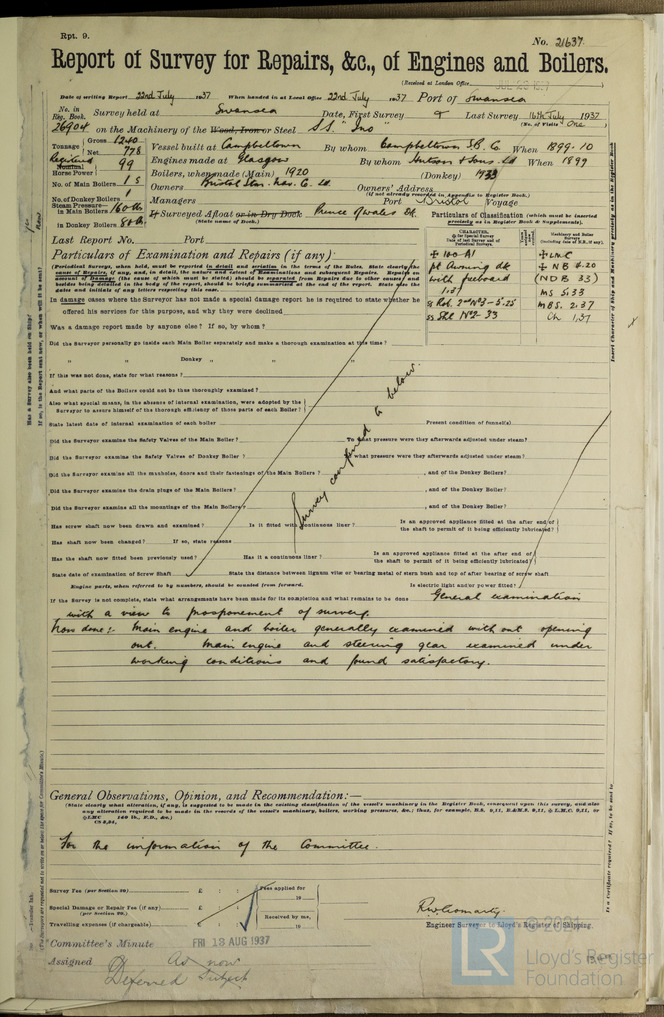 Rpt. 9.
No. 21637
Report of Survey for Repairs, &c., of Engines and Boilers.
(Received at London Office
Date of writing Report 22nd July 1937 When handed in at Local Office 22nd July 1937 Port of Swansea
No. in Reg. Book. Survey held at Swansea Date, First Survey Last Survey 16th July 1937
(No. of Visits One)
26904 on the Machinery of the Wood, Iron or Steel S.S. "Ino"
Tonnage Gross 1240 Net 778
Vessel built at Campbeltown By whom Campbeltown S.B. Co When 1899-10
Registered Horse Power 99
Engines made at Glasgow By whom Hutson & Sons Ld When 1899
No. of Main Boilers 1 S
Boilers, when made (Main) 1920 (Donkey) 1933
No. of Donkey Boilers 1
Owners Bristol Stm. Nav. Co. Ld. Owners' Address
(if not already recorded in Appendix to Register Book.)
Steam Pressure— in Main Boilers 160 lb
Managers Port Bristol Voyage
in Donkey Boilers 80 lb.
If Surveyed Afloat or in Dry Dock Prince of Wales Dk.
(State name of Dock.)
Particulars of Classification (which must be inserted precisely as in Register Book & Supplements).
Last Report No. Port
Particulars of Examination and Repairs (if any)
+ 100 A1
pt Awning dk
with freeboard
1.37
SS No2- 33
+ LMC
+ NB 4.20
(NDB 33)
MS 5.33
MBS. 2.37
Ch 1.37
In damage cases where the Surveyor has not made a special damage report he is required to state whether he
offered his services for this purpose, and why they were declined
Was a damage report made by anyone else? If so, by whom?
Did the Surveyor personally go inside each Main Boiler separately and make a thorough examination at this time?
" " Donkey " " "
If this was not done, state for what reasons?
And what parts of the Boilers could not be thus thoroughly examined?
Also what special means, in the absence of internal examination, were adopted by the
Surveyor to assure himself of the thorough efficiency of those parts of each Boiler?
State latest date of internal examination of each boiler Present condition of funnel(s)
Did the Surveyor examine the Safety Valves of the Main Boiler? To what pressure were they afterwards adjusted under steam?
Did the Surveyor examine the Safety Valves of Donkey Boiler? To what pressure were they afterwards adjusted under steam?
Did the Surveyor examine all the manholes, doors and their fastenings of the Main Boilers? , and of the Donkey Boilers?
Did the Surveyor examine the drain plugs of the Main Boilers? , and of the Donkey Boiler?
Did the Surveyor examine all the mountings of the Main Boilers? , and of the Donkey Boiler?
Survey confined to below.
Has screw shaft now been drawn and examined? Is it fitted with continuous liner? Is an approved appliance fitted at the after end of the shaft to permit of it being efficiently lubricated?
Has shaft now been changed? If so, state reasons
Has the shaft now fitted been previously used? Has it a continuous liner? Is an approved appliance fitted at the after end of the shaft to permit of it being efficiently lubricated?
State date of examination of Screw Shaft State the distance between lignum vitæ or bearing metal of stern bush and top of after bearing of screw shaft
Engine parts, when referred to by numbers, should be counted from forward. Is electric light and/or power fitted?
If the Survey is not complete, state what arrangements have been made for its completion and what remains to be done General examination
with a view to postponement of survey.
Now done:- Main engine and boiler generally examined without opening
out. Main engine and steering gear examined under
working conditions and found satisfactory.
General Observations, Opinion, and Recommendation:—
(State clearly what alteration, if any, is suggested to be made in the existing classification of the vessel's machinery in the Register Book, consequent upon this survey, and also
any alteration required to be made in the records of the vessel's machinery, boilers, working pressures, &c.; thus, for example, B.S. 9,11, B.&M.S. 9,11, LMC 9,11, or
LMC 140 lb., F.D., &c.)
CS 9,11,
For the information of the Committee.
Survey Fee (per Section 29) £ : : Fees applied for
19
Special Damage or Repair Fee (if any) £ : :
(per Section 29.)
Received by me,
Travelling expenses (if chargeable) £ : : 19
Engineer Surveyor to Lloyd's Register of Shipping.
Committee's Minute FRI 13 AUG 1937
Assigned As now
Deferred Subject
© 2021
LR
Lloyd's Register
Foundation